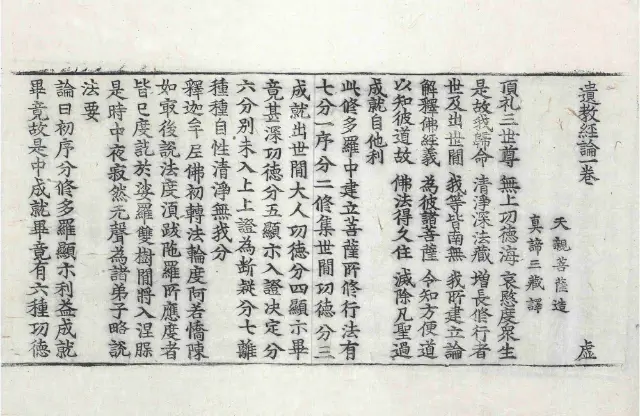 遺教經論一卷 虛
天親菩薩造
真諦三藏譯
頂礼三世尊 無上功德海 哀愍度衆生
是故我歸命 清淨深法藏 增長修行者
世及出世間 我等皆南無 我所建立論
解釋佛經義 為彼諸菩薩 令知方便道
以知彼道故 佛法得久住 滅除凡聖過
成就自他利
此修多羅中建立菩薩所修行法有
七分一序分二修集世間功德分三
成就出世間大人功德分四顯示畢
竟甚深功德分五顯示入證決定分
六分別未入上上證為斷疑分七離
種種自性清淨無我分
釋迦牟尼佛初轉法輪度阿若憍陳
如最後說法度須跋陁羅所應度者
皆已度訖於娑羅雙樹間將入涅槃
是時中夜寂然无聲為諸弟子略說
法要
論曰初序分修多羅顯示利益成就
畢竟故是中成就畢竟有六種功德